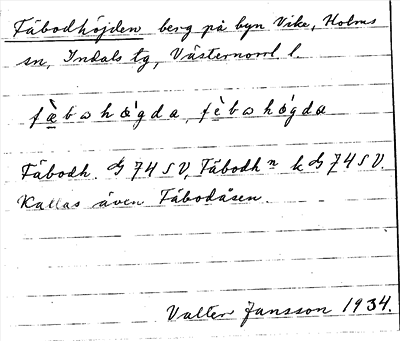 Fäbodhöjden berg på byn Vike, Holms
sn, Indals tg, Västernorrl. l.
fæ̀bωhǿgda, fèbωhǿgda
Fäbodh. G 74 SV, Fäbodhⁿ k G 74 SV.
Kallas även Fäbodåsen.
Valter Jansson 1934.